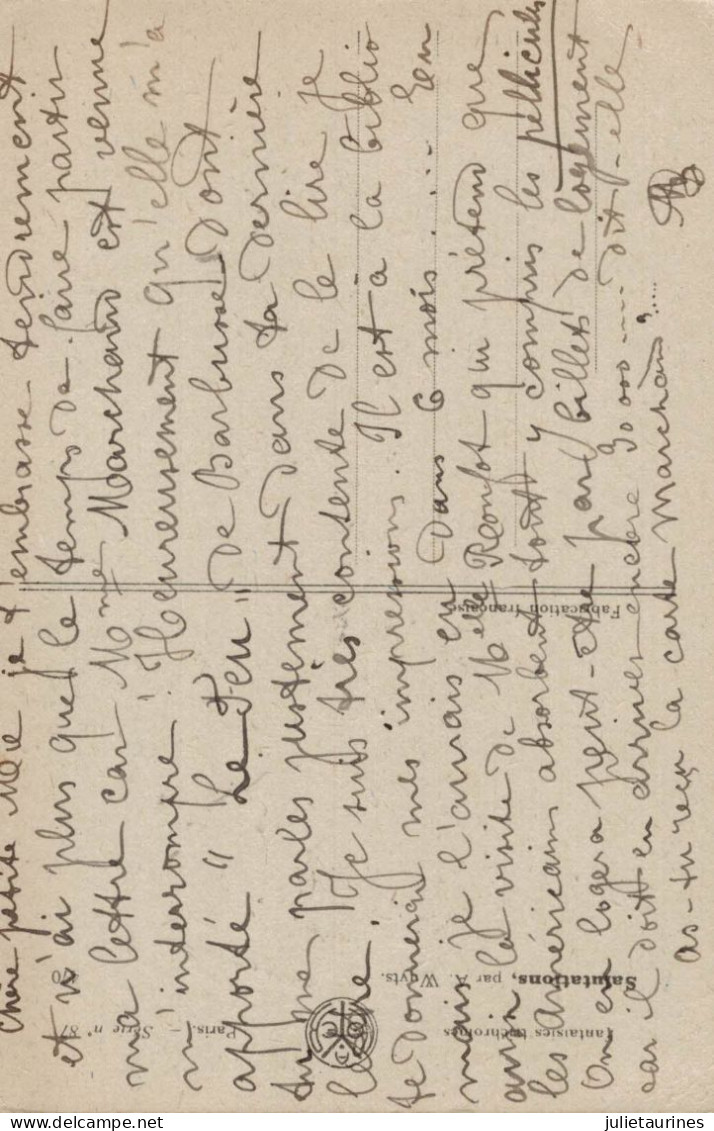 Chère petite Mie je t'embrasse tendrement
et n'ai plus que le temps de faire partir
ma lettre car Mme Marchand est venue
m'interrompre. Heureusement qu'elle m'a
apporté "Le Feu" de Barbusse dont
tu me parles justement dans ta dernière
lettre. Je suis très contente de le lire je
te donnerai mes impressions. Il est à la biblio
mais je l'aurais eu dans 6 mois.... Eu
aussi la visite de Melle qui prétend que
les américains absorbent tout y compris les pellicules
On en logera peut-être par billets de logement
car il doit en arriver encore 30 000 ... dit-elle
as-tu reçu la carte Marchand".....
Fabrication française
Salutations, par A. Wuyts.
Fantaisies trichromes
Paris. – Série n° 87
julietaurines
delcampe.net